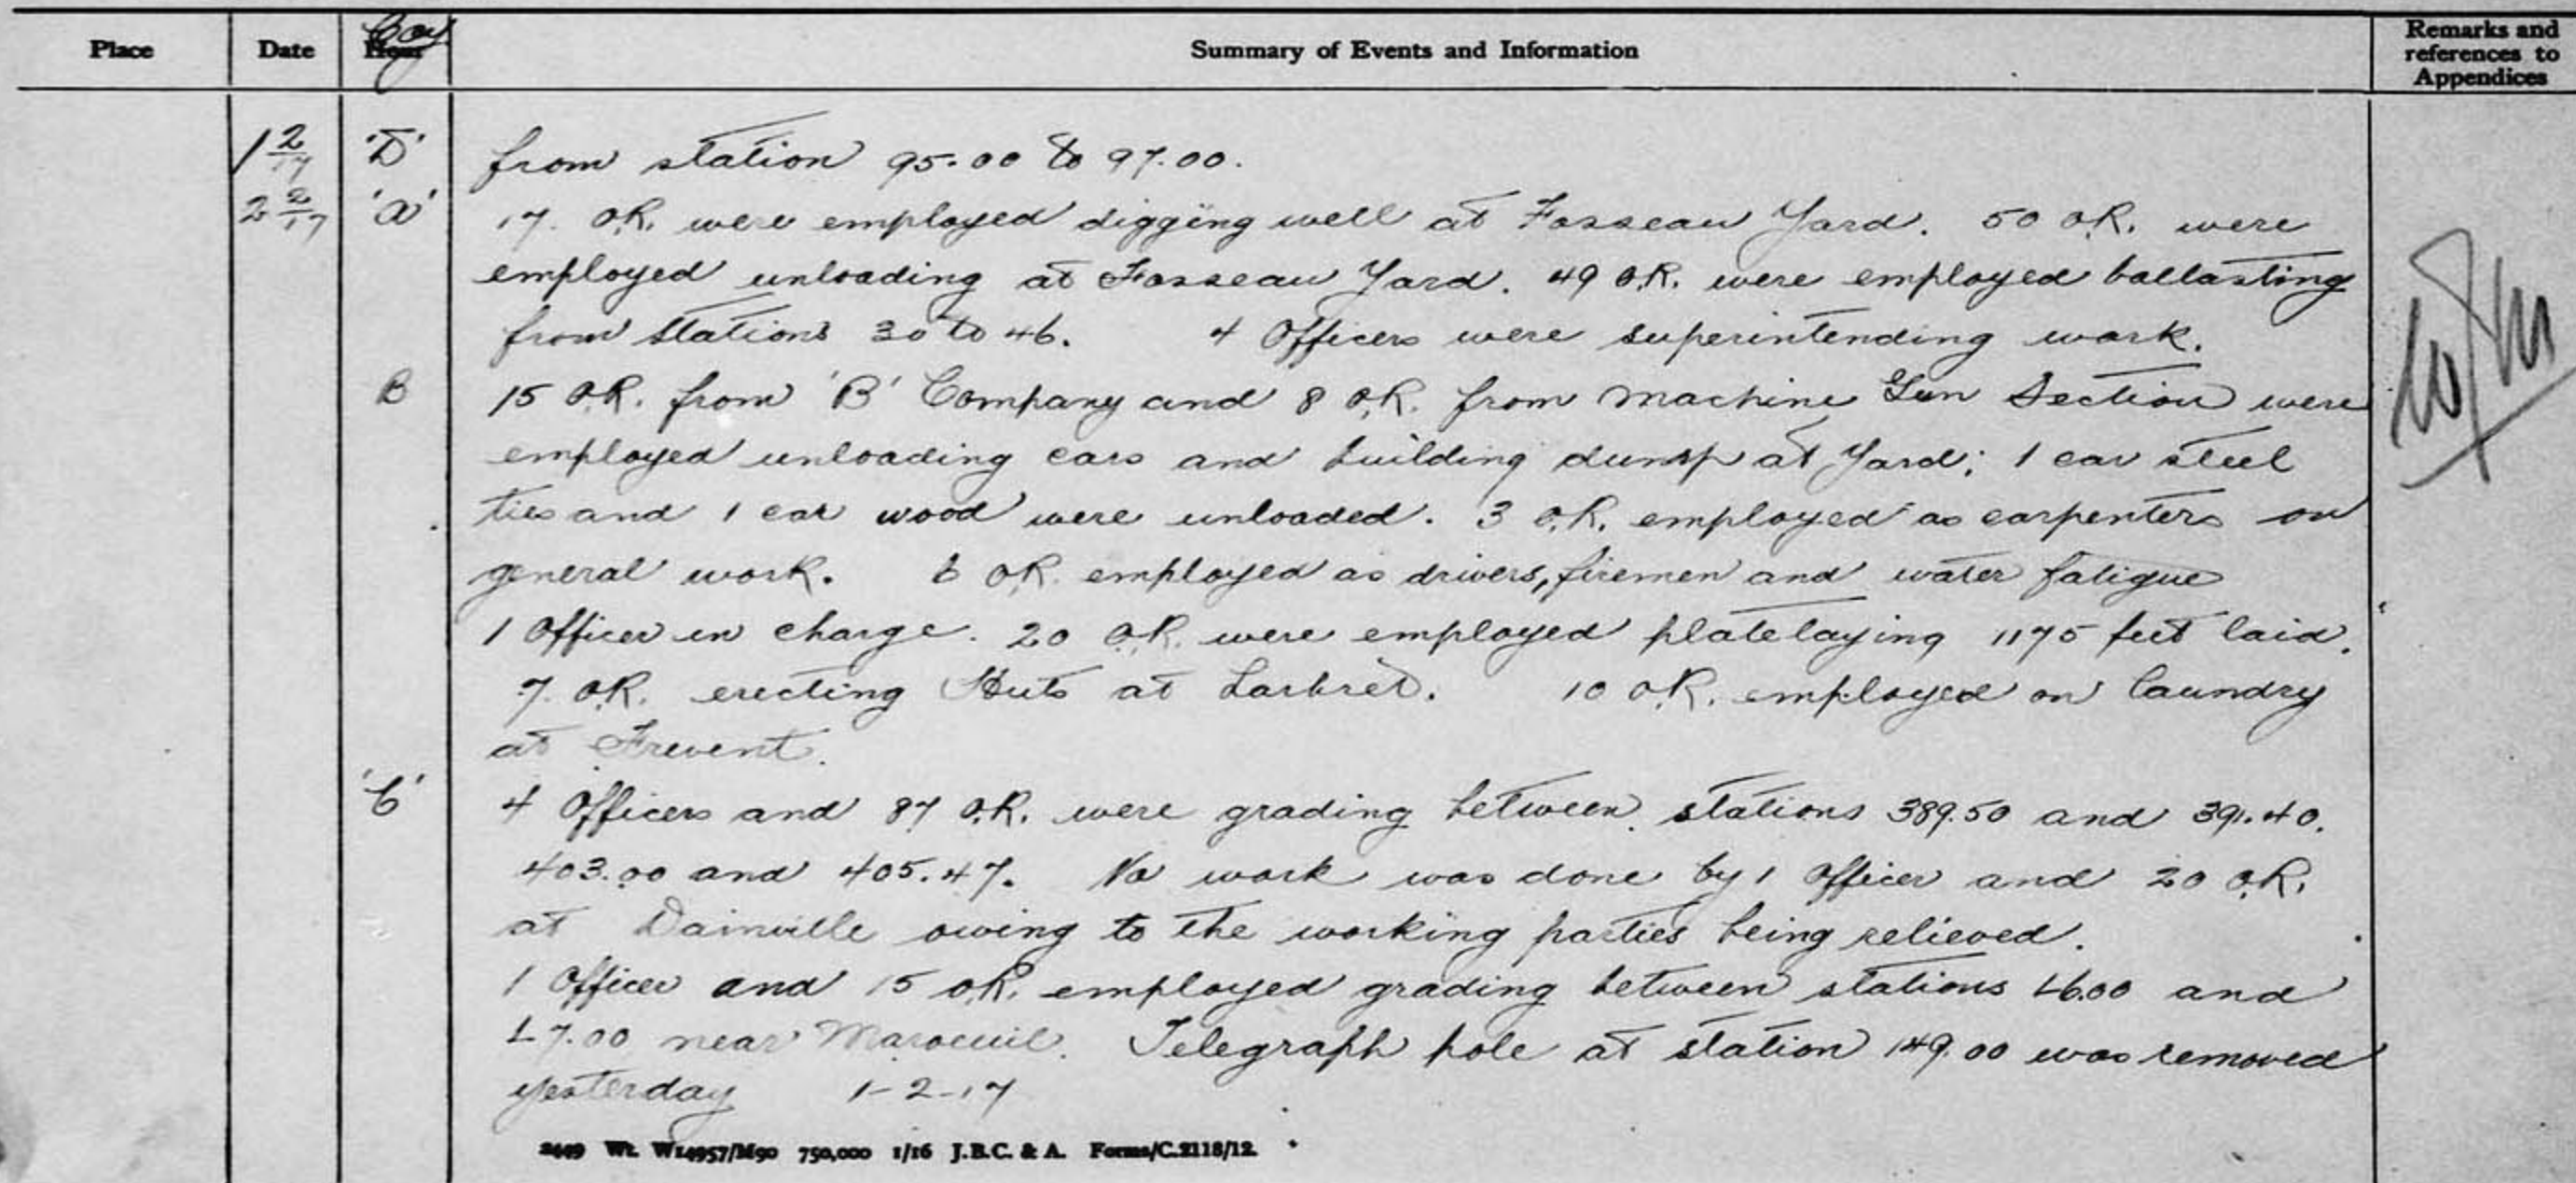 Place Date Hour Coy Summary of Events and Information Remarks and references to Appendices
1 2/17 'D' from station 95.00 to 97.00.
2 2/17 'A' 17. O.R. were employed digging well at Fosseau Yard. 50 O.R. were
employed unloading at Fosseau Yard. 49 O.R. were employed ballasting
from stations 30 to 46. 4 Officers were superintending work.
B 15 O.R. from 'B' Company and 8 O.R. from Machine Gun Section were
employed unloading cars and building dump at Yard; 1 car steel
ties and 1 car wood were unloaded. 3 O.R. employed as carpenters on
general work. 6 OR. employed as drivers, firemen and water fatigue
1 Officer in charge. 20 O.R. were employed platelaying 1175 feet laid.
7. O.R. erecting Huts at Larbret. 10 O.R. employed on laundry
at Frevent.
'C' 4 Officers and 87 O.R. were grading between stations 389.50 and 391.40.
403.00 and 405.47. No work was done by 1 Officer and 20 O.R.
at Dainville owing to the working parties being relieved.
1 Officer and 15 O.R. employed grading between stations L6.00 and
L7.00 near Maroeuil. Telegraph pole at station 149.00 was removed
yesterday 1-2-17
2449 Wt. W14957/M90 750,000 1/16 J.B.C. & A. Forms/C.2118/12.